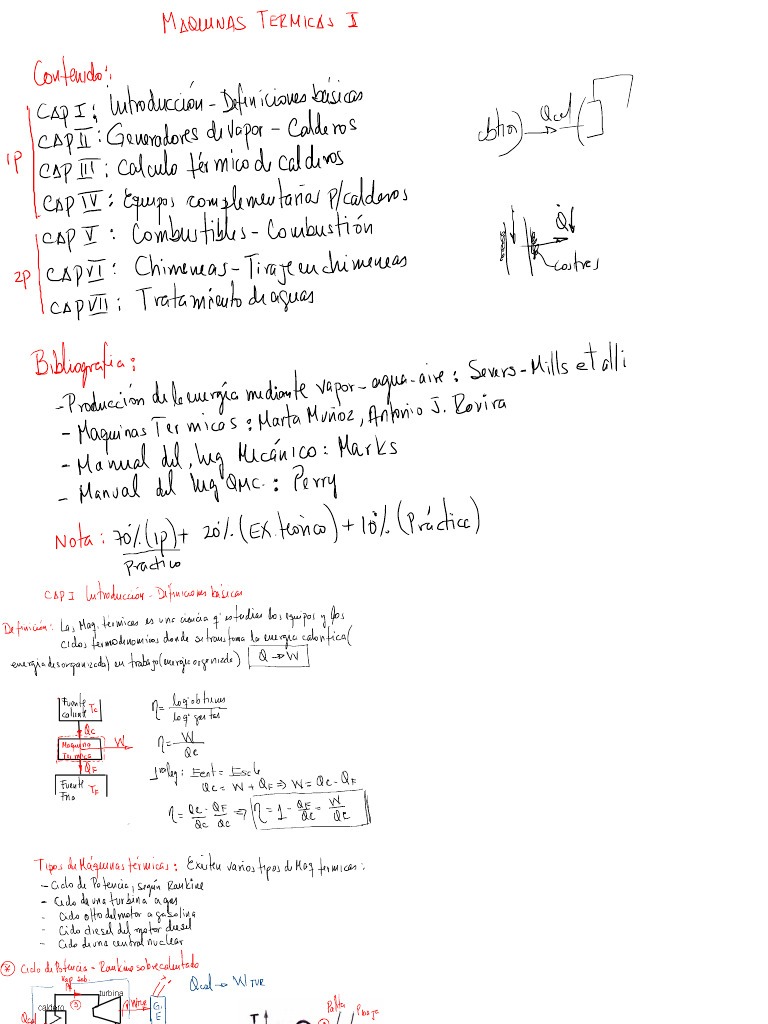 MAQUINAS TERMICAS I
Contenido:
CAP I: Introducción - Definiciones básicas
CAP II: Generadores de vapor - Calderos
CAP III: Calculo térmico de calderos
CAP IV: Equipos complementarias p/calderos
1P
CAP V: Combustibles - Combustión
CAP VI: Chimeneas - Tiraje en chimeneas
CAP VII: Tratamiento de aguas
2P
Qcal
Q↓
costres
Bibliografia:
- Producción de la energía mediante vapor - agua - aire: Severs - Mills et alli
- Maquinas Termicas: Marta Muñoz, Antonio J. Rovira
- Manual del Ing Mecánico: Marks
- Manual del Ing QMC.: Perry
Nota: 70%(1P) + 20%(EX. teórico) + 10%(Práctica)
Practico
CAP I Introducción - Definiciones básicas
Definición: Las Maq. térmicas es una ciencia q' estudia los equipos y los
ciclos termodinamicos donde se transforma la energia calorifica(
energia desorganizada) en trabajo(energia organizada) Q → W
Fuente
caliente Tc
Qc
Maquina
Termica
W
QF
Fuente
Fria TF
η = log' obtiene / log' gastas
η = W / Qc
1raley: Eent = Esale
Qc = W + QF ⇒ W = Qc - QF
η = Qc/Qc - QF/Qc ⇒ η = 1 - QF/Qc = W/Qc
Tipos de Máquinas térmicas: Existen varios tipos de Maq termicas:
- Ciclo de Potencia, según Rankine
- Ciclo de una turbina a gas
- Ciclo otto del motor a gasolina
- Ciclo diesel del motor diesel
- Ciclo de una central nuclear
* Ciclo de Potencia - Rankine sobrecalentado
Vap sob
Qcal → WTUR
turbina
caldero
WTUR
G.E
Qcal
T